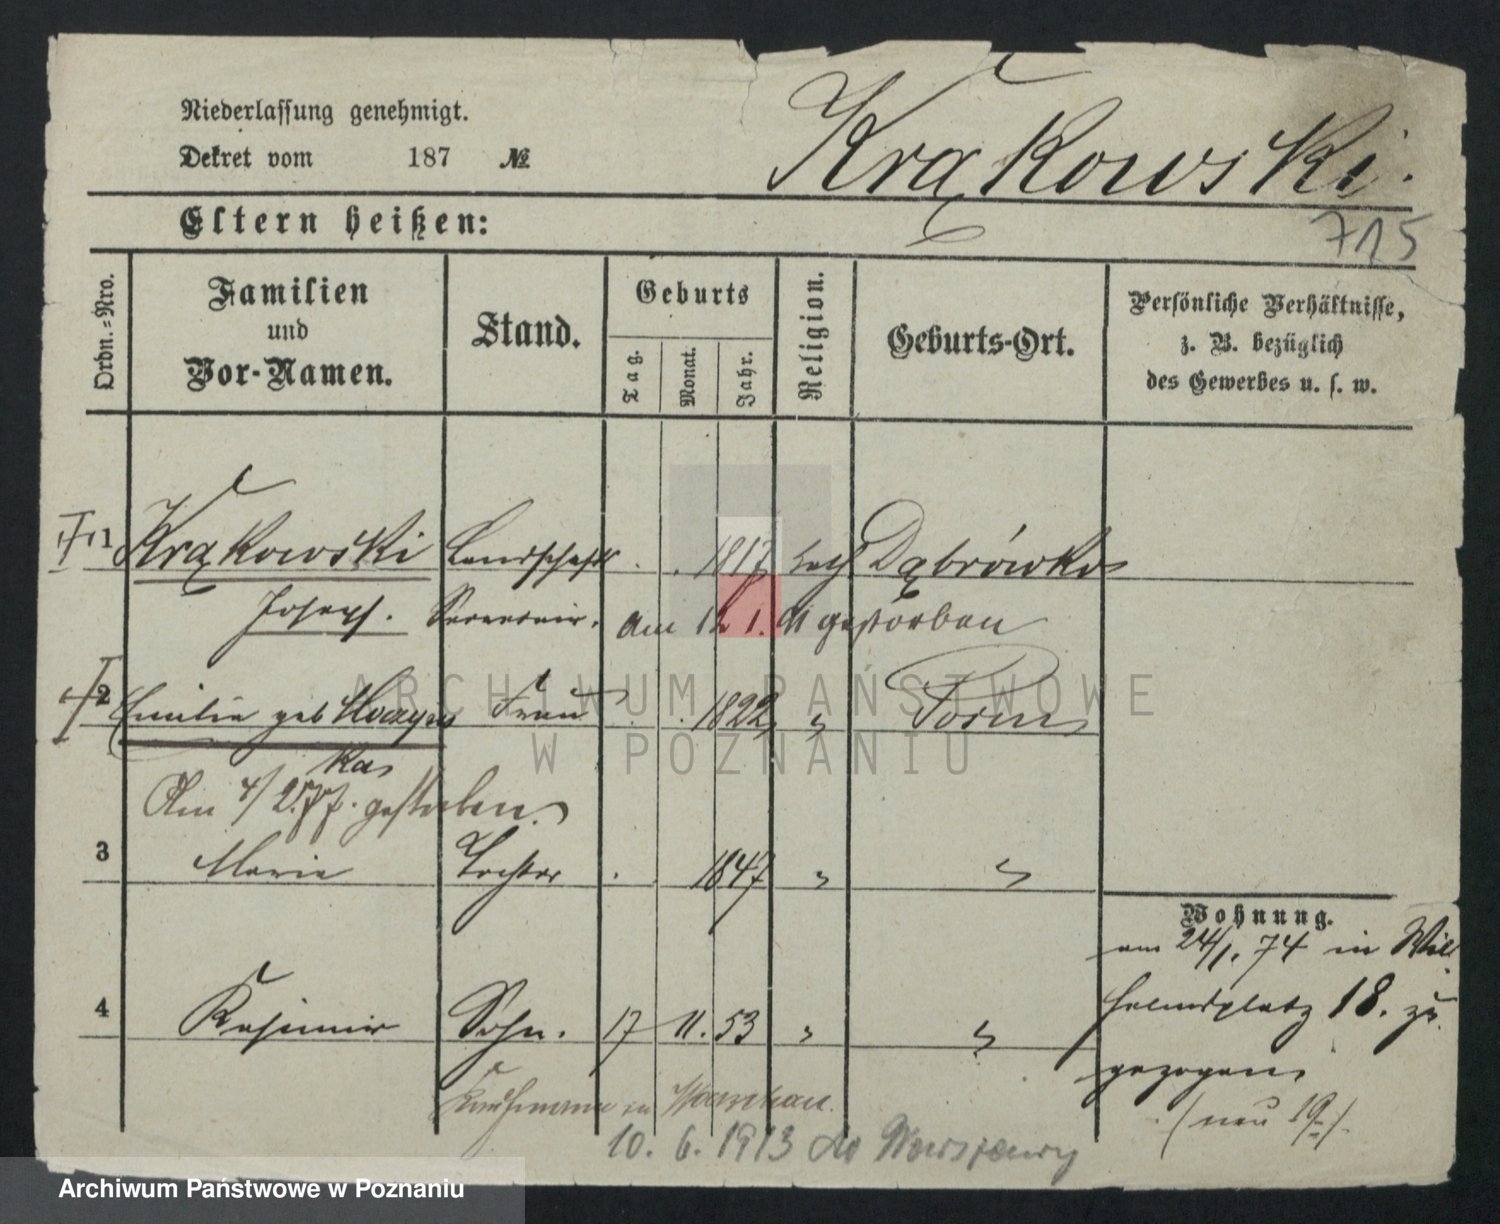 Niederlassung genehmigt.
Dekret vom 187 №
Krąkowski.
Eltern heißen:
715
Ordn.-Nro.
Familien und Vor-Namen.
Stand.
Geburts
Tag.
Monat.
Jahr.
Religion.
Geburts-Ort.
Persönliche Verhältnisse,
z. B. bezüglich
des Gewerbes u. s. w.
1 Krąkowski Landschafts 1817 kath Dąbrówka
Joseph.
am 12 1. gestorben
2 Emilie geb Frau 1822 " Posen
kas
Am 4/2.77. gestorben.
3 Marie Tochter 1847 " "
4 Kasimir Sohn. 17 11. 53 " "
Wohnung.
am 24/1. 74 in Wil
helmsplatz 18. zu
gezogen
(neu 19.)
Kaufmann in Warschau.
10. 6. 1913 do Warszawy
ARCHIWUM PAŃSTWOWE
W POZNANIU
Archiwum Państwowe w Poznaniu